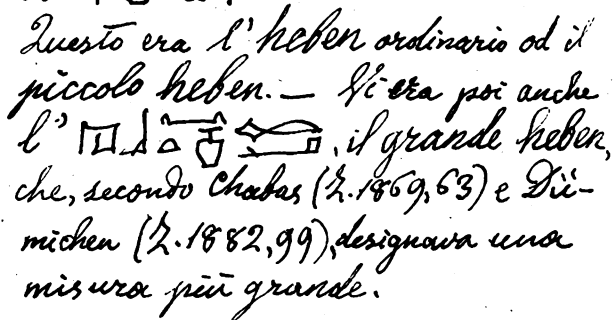 Questo era l'heben ordinario od il
piccolo heben. — Vi era poi anche
l' , il grande heben,
che, secondo Chabas (Z. 1869, 63) e Dü-
michen (Z. 1882, 99), designava una
misura più grande.